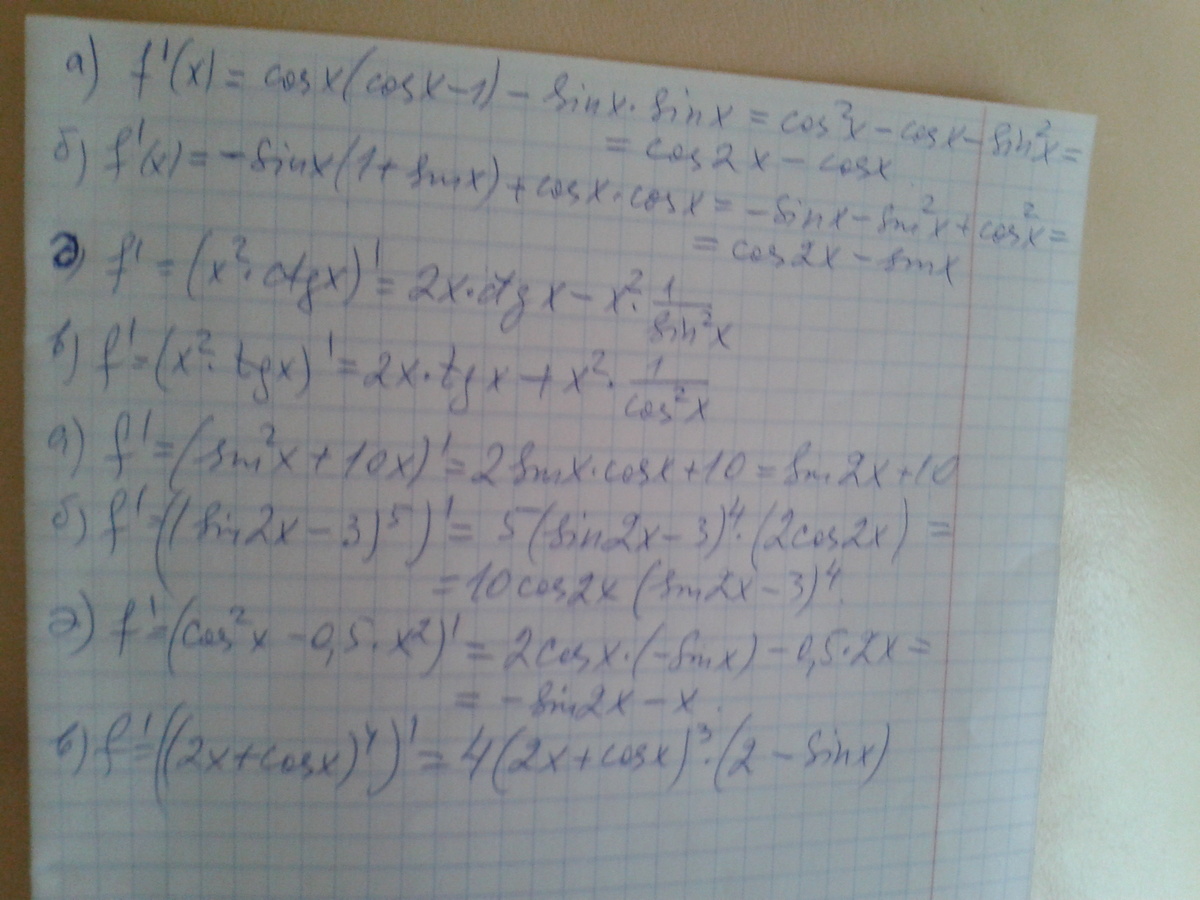 а) f'(x) = cosx(cosx-1) - sinx·sinx = cos²x - cosx - sin²x =
= cos2x - cosx
б) f'(x) = -sinx(1+sinx) + cosx·cosx = -sinx - sin²x + cos²x =
= cos2x - sinx
д) f' = (x²·ctgx)' = 2x·ctgx - x²·1/sin²x
в) f' = (x²·tgx)' = 2x·tgx + x²·1/cos²x
а) f' = (sin²x + 10x)' = 2sinx·cosx + 10 = sin2x + 10
б) f' = ((sin2x - 3)⁵)' = 5(sin2x - 3)⁴·(2cos2x) =
= 10cos2x(sin2x - 3)⁴.
д) f' = (cos²x - 0,5·x²)' = 2cosx·(-sinx) - 0,5·2x =
= -sin2x - x.
в) f' = ((2x+cosx)⁴)' = 4(2x+cosx)³·(2 - sinx)